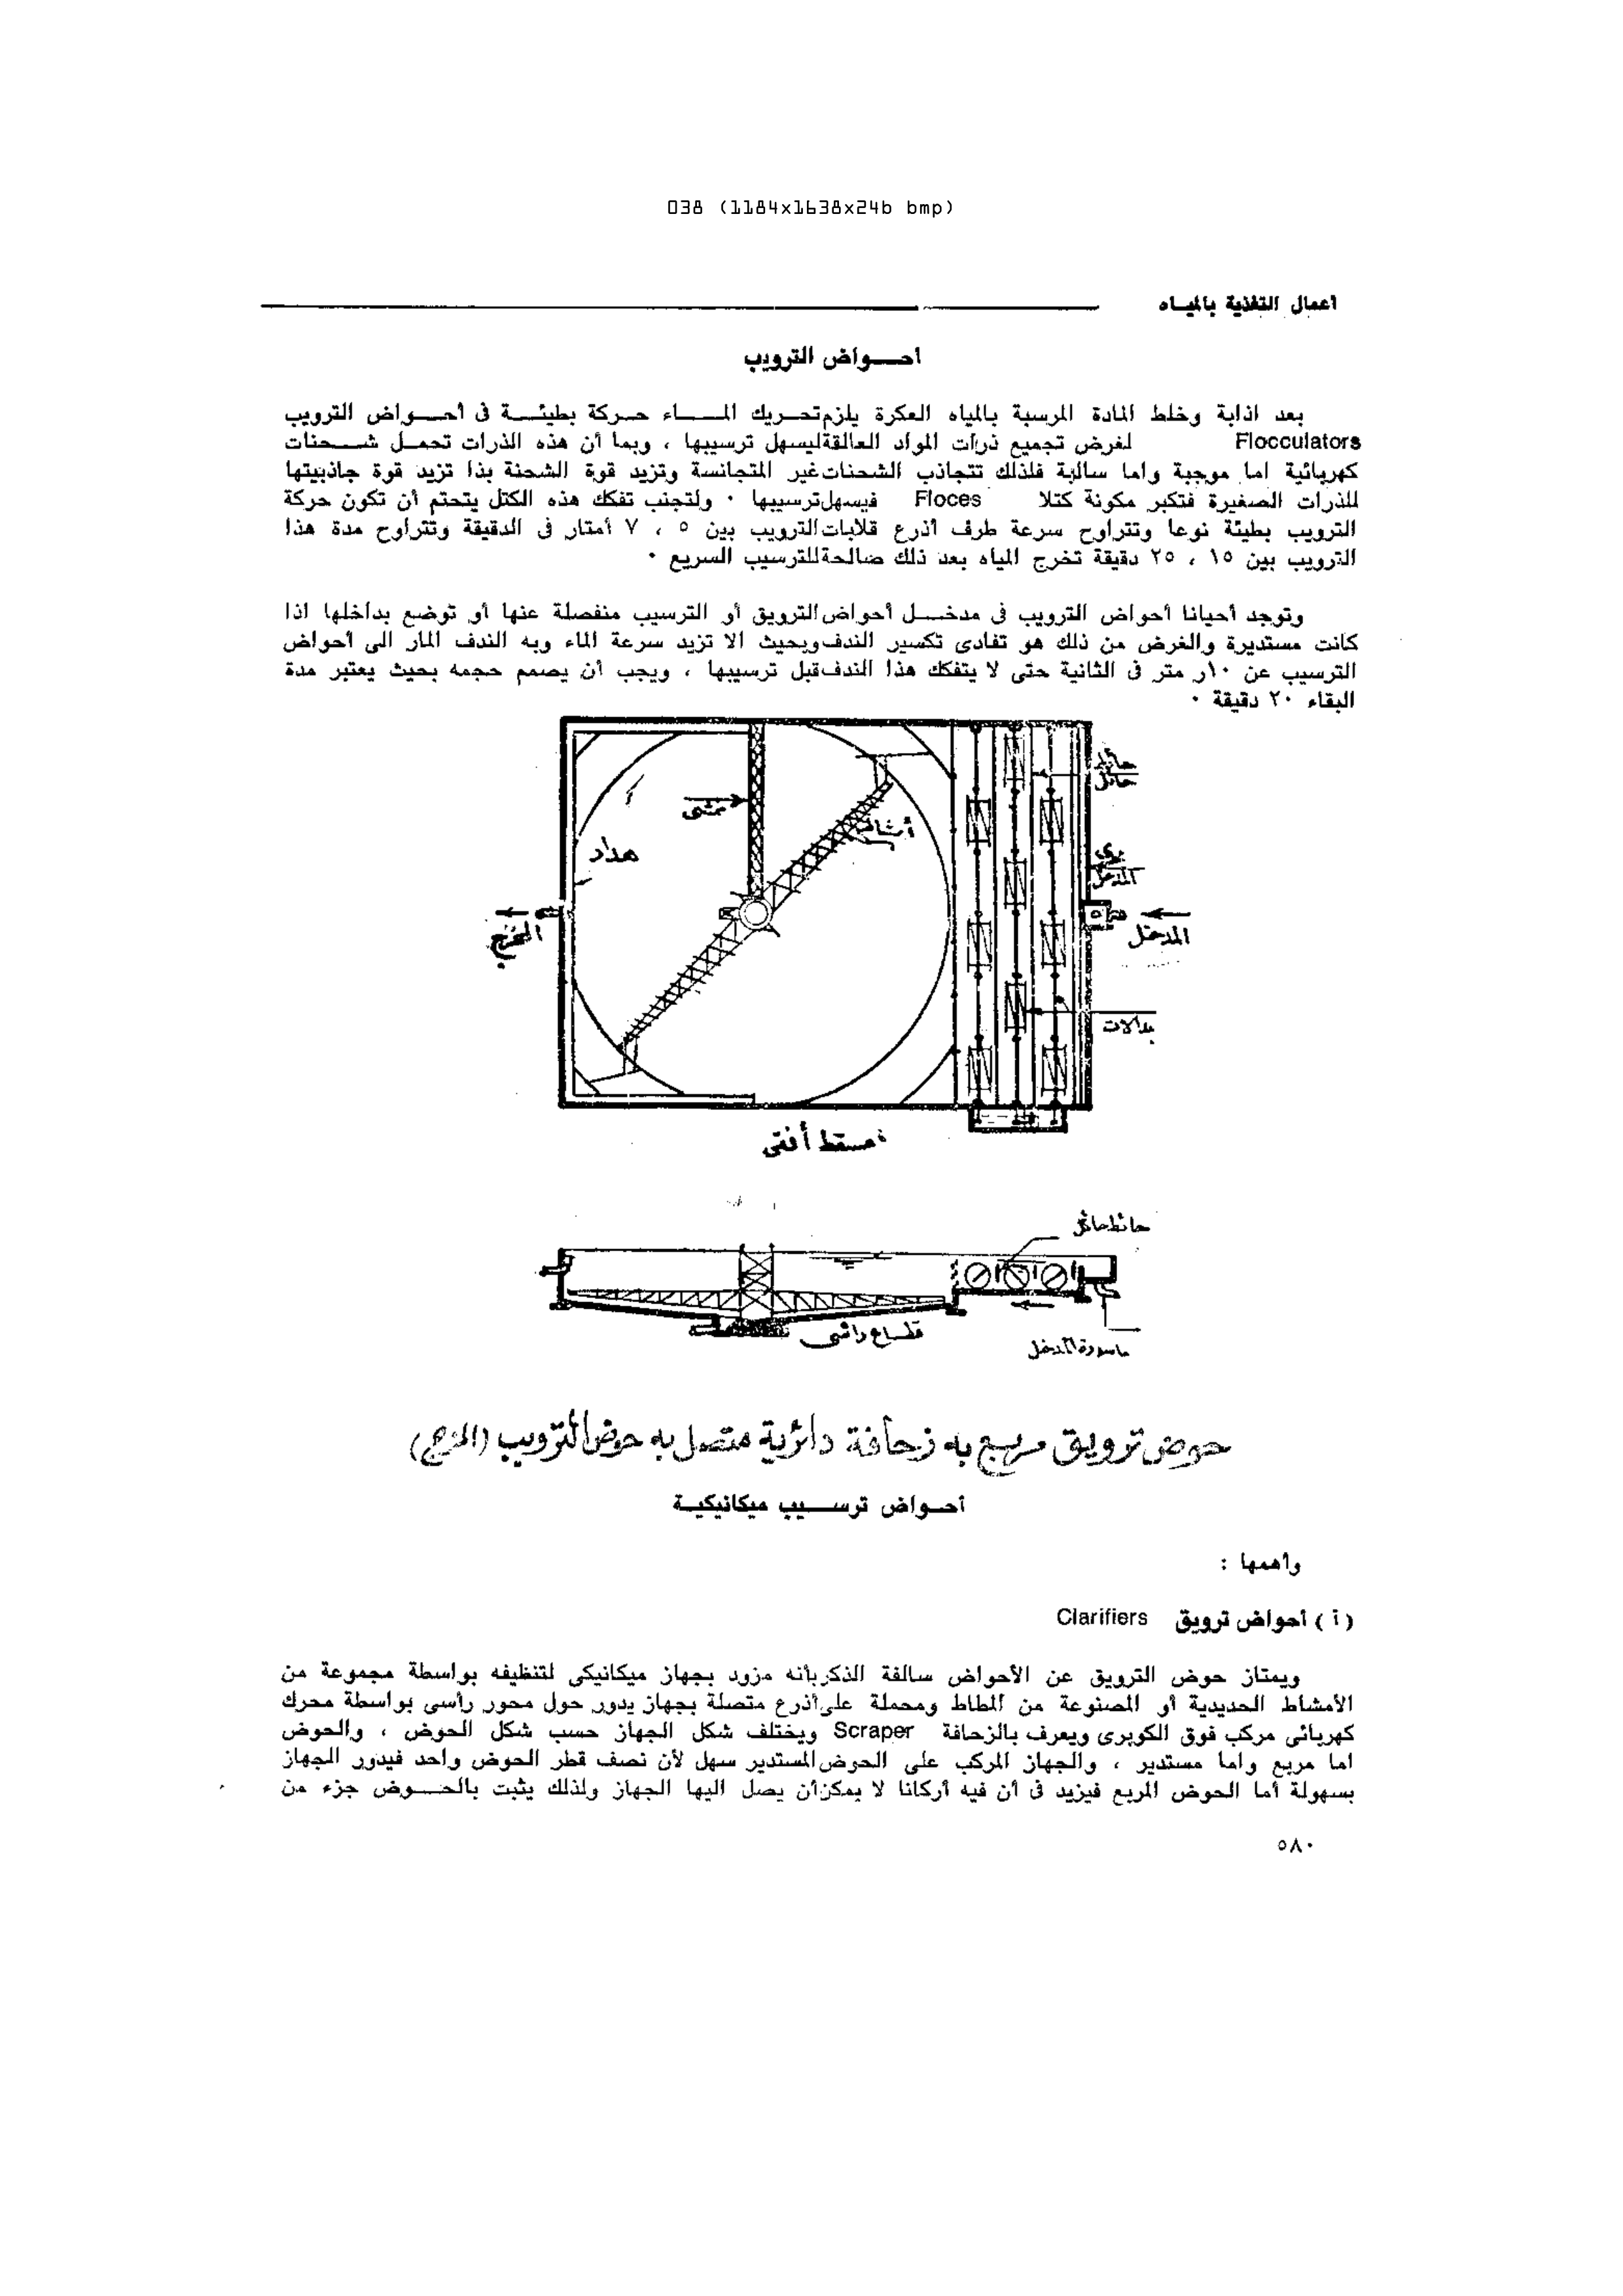 038 (1184x1638x24b bmp)
أعمال التغذية بالمياه
أحواض الترويب
بعد اذابة وخلط المادة المرسبة بالمياه العكرة يلزم تحريك الماء حركة بطيئة فى أحواض الترويب
Flocculators لغرض تجميع ذرات المواد العالقة ليسهل ترسيبها ، وبما أن هذه الذرات تحمل شحنات
كهربائية اما موجبة واما سالبة فلذلك تتجاذب الشحنات غير المتجانسة وتزيد قوة الشحنة بذا تزيد قوة جاذبيتها
للذرات الصغيرة فتكبر مكونة كتلا Floces فيسهل ترسيبها ٠ ولتجنب تفكك هذه الكتل يتحتم أن تكون حركة
الترويب بطيئة نوعا وتتراوح سرعة طرف أذرع قلابات الترويب بين ٥ ، ٧ أمتار فى الدقيقة وتتراوح مدة هذا
الترويب بين ١٥ ، ٢٥ دقيقة تخرج المياه بعد ذلك صالحة للترسيب السريع ٠
وتوجد أحيانا أحواض الترويب فى مدخل أحواض الترويق أو الترسيب منفصلة عنها أو توضع بداخلها اذا
كانت مستديرة والغرض من ذلك هو تفادى تكسير الندف وبحيث الا تزيد سرعة الماء وبه الندف المار الى أحواض
الترسيب عن ١٠ر متر فى الثانية حتى لا يتفكك هذا الندف قبل ترسيبها ، ويجب أن يصمم حجمه بحيث يعتبر مدة
البقاء ٢٠ دقيقة ٠
حائط حائل
ممشى
هدار
المدخل
المخرج
المدخل
بدالات
مسقط أفقى
حائط حائل
قطاع رأسى
ماسورة المدخل
حوض ترويق مربع به زحافة دائرية متصل به حوض الترويب (المزج)
أحواض ترسيب ميكانيكية
وأهمها :
( أ ) أحواض ترويق Clarifiers
ويمتاز حوض الترويق عن الأحواض سالفة الذكر بأنه مزود بجهاز ميكانيكى لتنظيفه بواسطة مجموعة من
الأمشاط الحديدية أو المصنوعة من المطاط ومحملة على أذرع متصلة بجهاز يدور حول محور رأسى بواسطة محرك
كهربائى مركب فوق الكوبرى ويعرف بالزحافة Scraper ويختلف شكل الجهاز حسب شكل الحوض ، والحوض
اما مربع واما مستدير ، والجهاز المركب على الحوض المستدير سهل لأن نصف قطر الحوض واحد فيدور الجهاز
بسهولة أما الحوض المربع فيزيد فى أن فيه أركانا لا يمكن أن يصل اليها الجهاز ولذلك يثبت بالحوض جزء من
٥٨٠